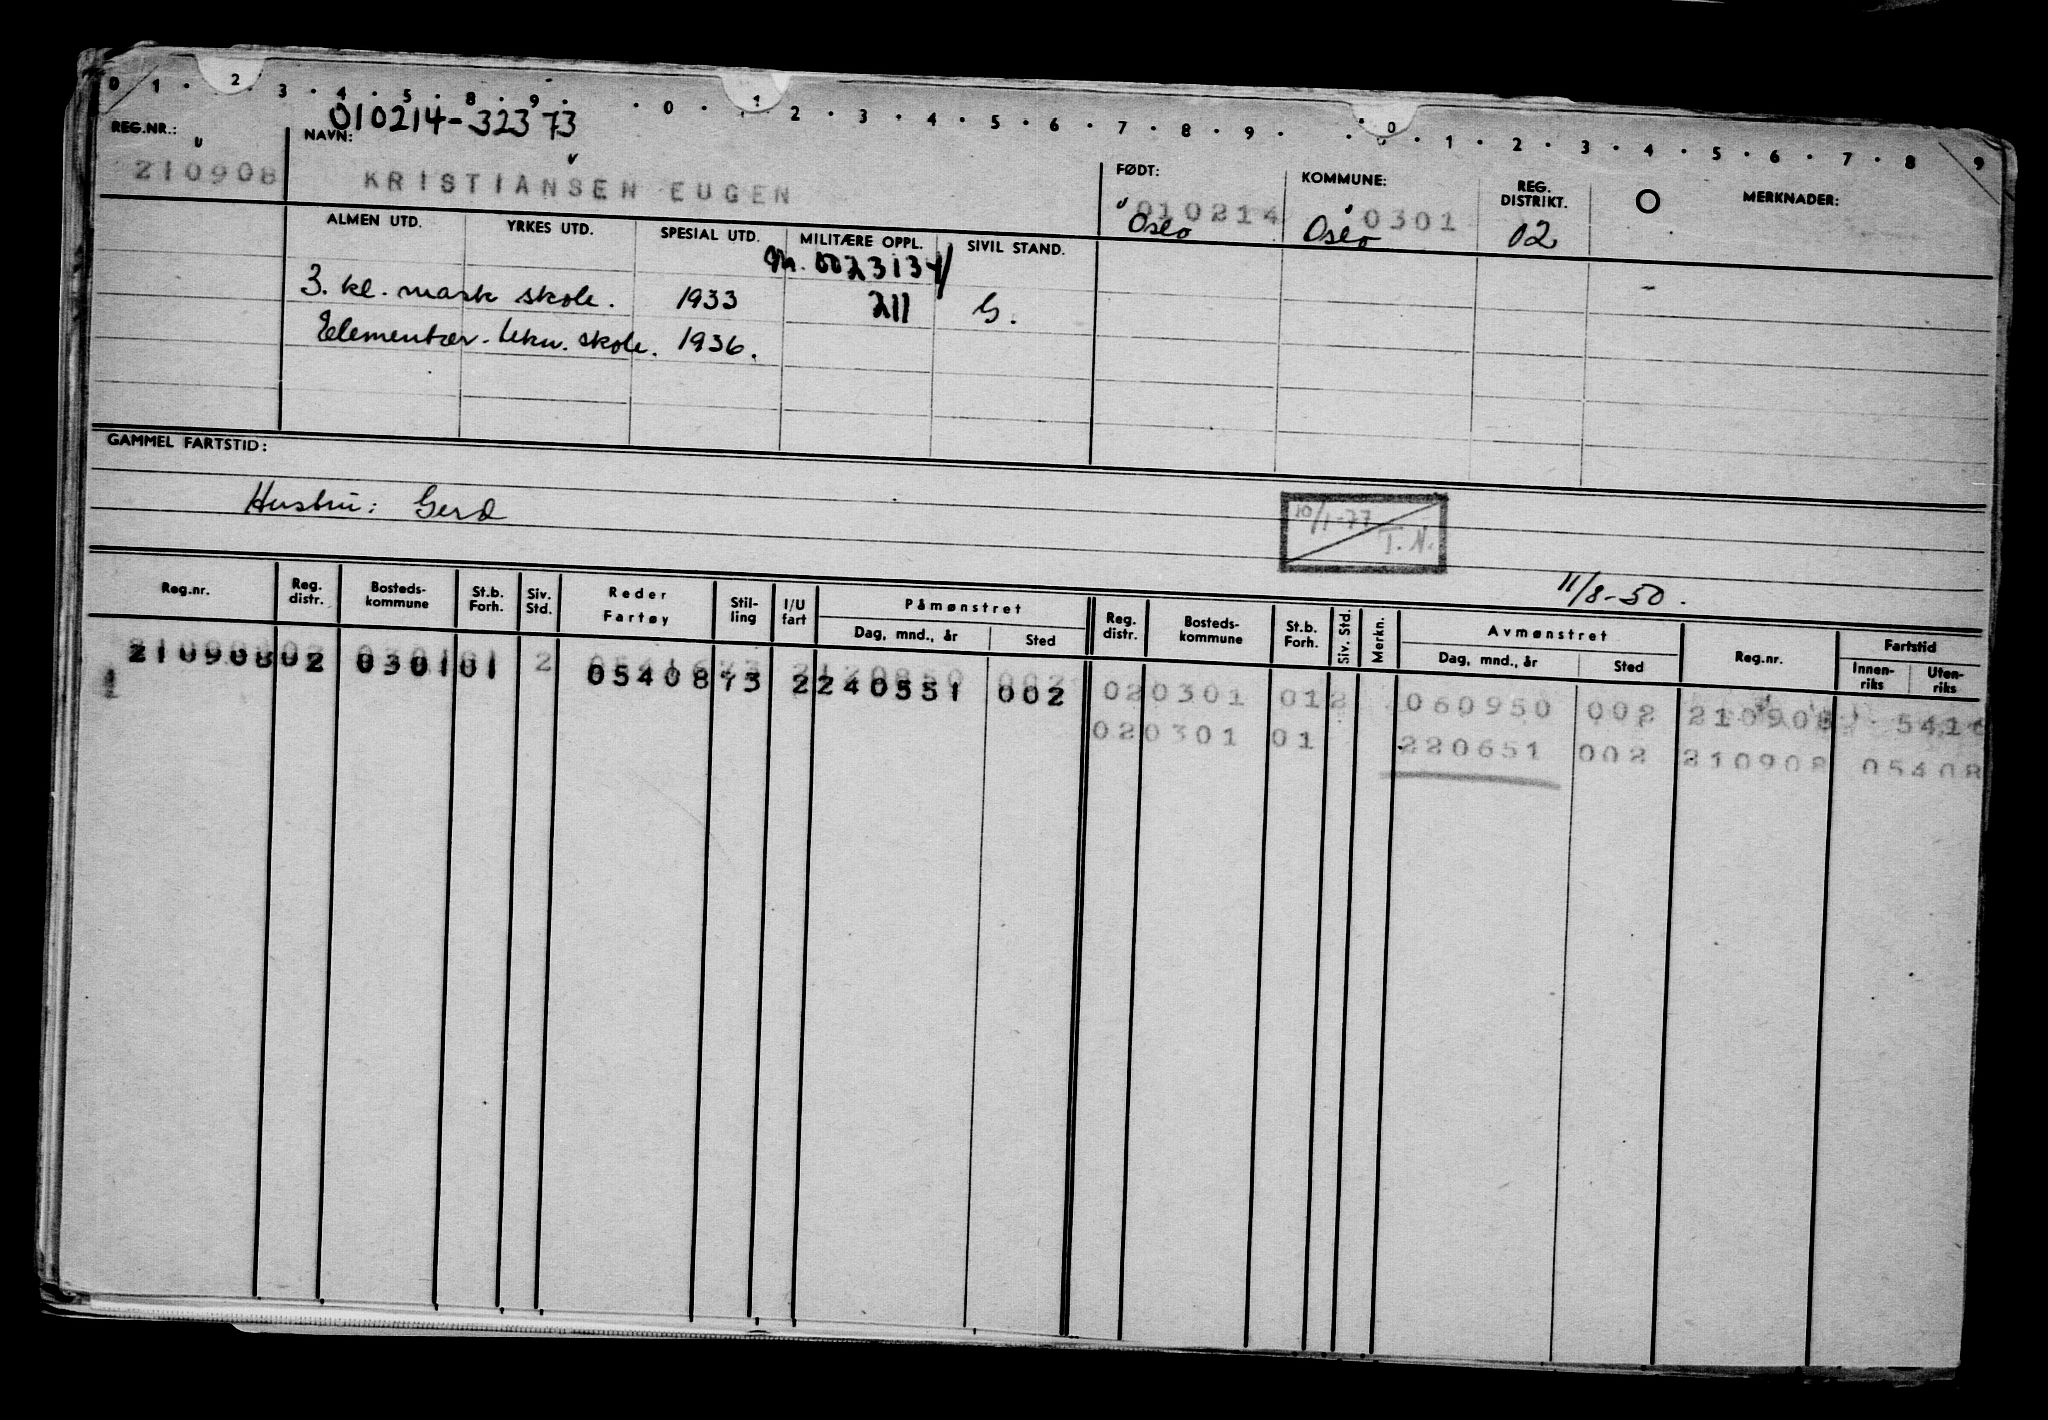 0 1 · 2 · 3 · 4 · 5 · 8 · 9 · · 0 · 1 · 2 · 3 · 4 · 5 · 6 · 7 · 8 · 9 · · 0 · 1 · 2 · 3 · 4 · 5 · 6 · 7 · 8 · 9
010214-32373
REG.NR.: NAVN: FØDT: KOMMUNE: REG. DISTRIKT. O MERKNADER:
210908 KRISTIANSEN EUGEN 010214 0301
Oslo Oslo 02
ALMEN UTD. YRKES UTD. SPESIAL UTD. MILITÆRE OPPL. SIVIL STAND.
3. kl. mask skole. 1933 211 G.
Elementær. tekn. skole. 1936.
GAMMEL FARTSTID:
Hustru: Gerd
10/1-77 T.N.
11/8-50.
Reg.nr. Reg. distr. Bosteds- kommune St.b. Forh. Siv. Std. Reder Fartøy Stil- ling I/U fart Påmønstret Dag, mnd., år Sted Reg. distr. Bosteds- kommune St.b. Forh. Siv. Std. Merkn. Avmønstret Dag, mnd., år Sted Reg.nr. Fartstid Innen- riks Uten- riks
210908 02 0301 01 2 05408 73 2 240551 002 02 0301 01 2 060950 002 210908 5416
02 0301 01 220651 002 210908 05408